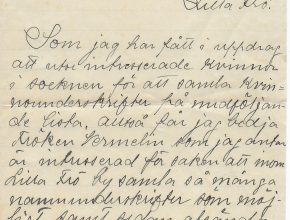 Lilla Frö.
Som jag har fått i uppdrag
att utse intresserade kvinnor
i socknen för att samla kvin-
nounderskrifter på medföljan-
de lista, alltså får jag bedja
Fröken Vermelin som jag antar
är intresserad för saken att inom
Lilla Frö by samla så många
namnunderskrifter som möj-
ligt samt sedan